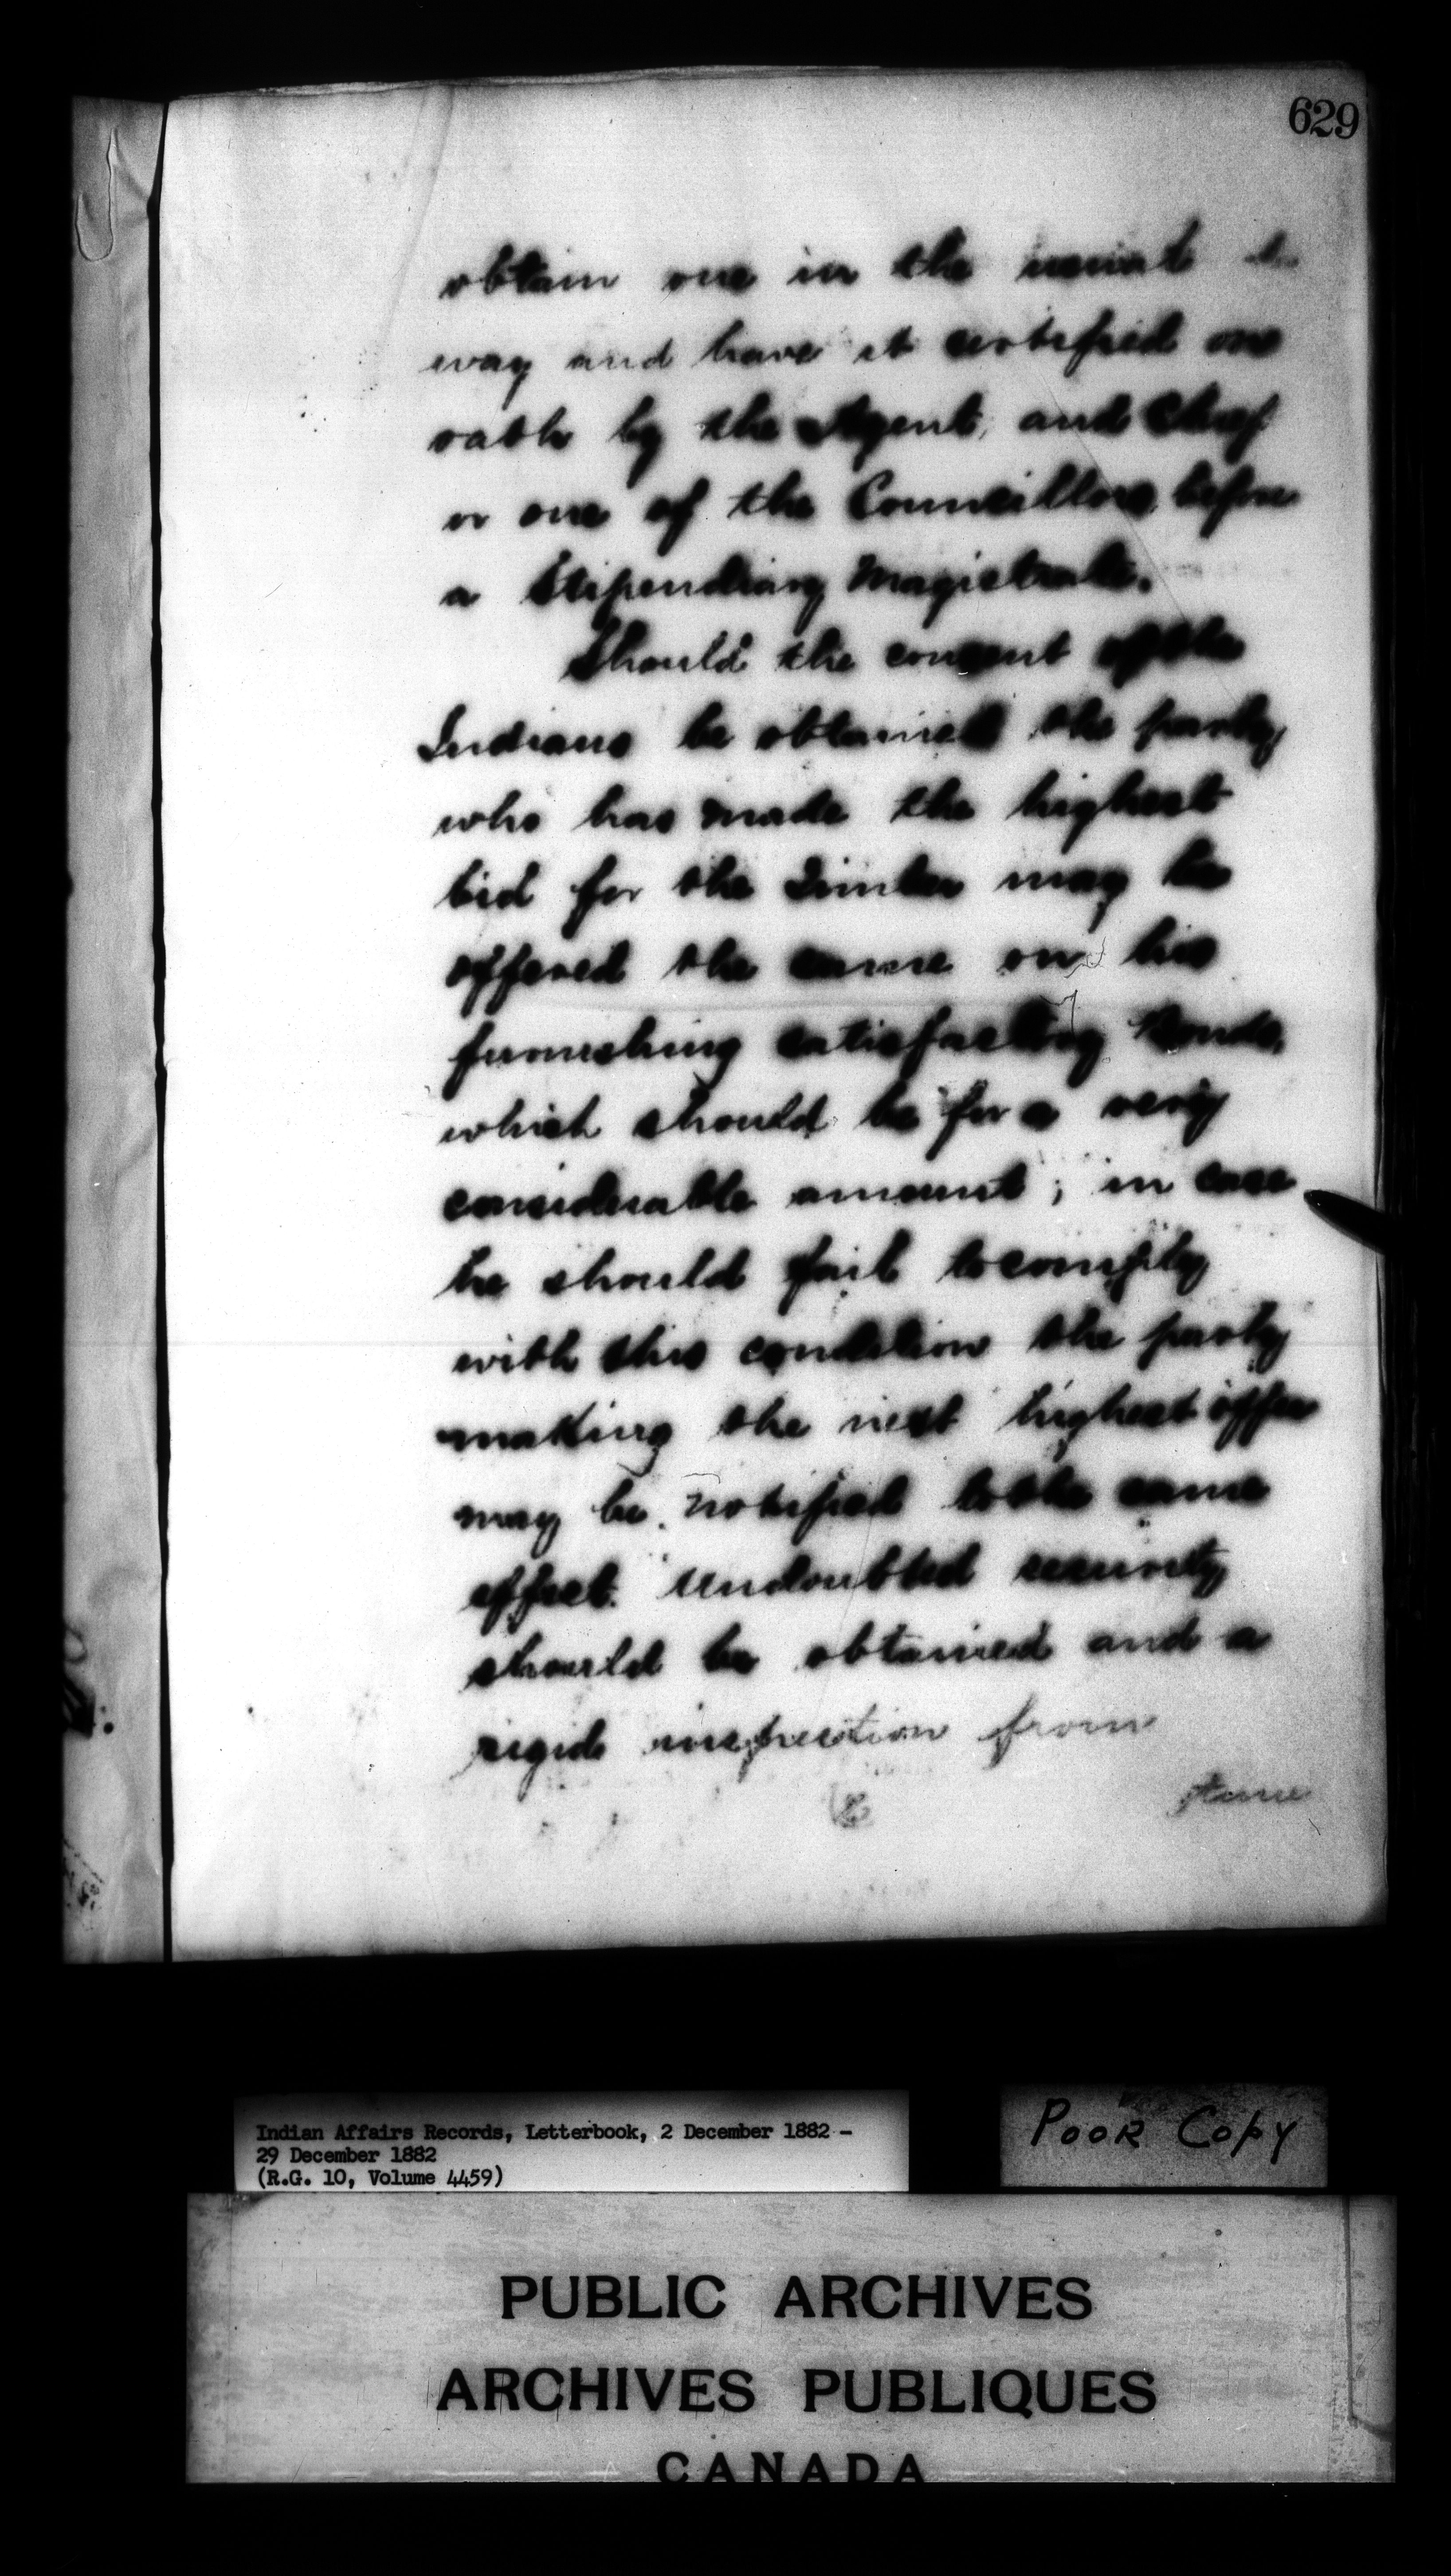 629
obtain one in the usual
way and have it certified on
oath by the Agent, and Chief
or one of the Councillors before
a Stipendiary Magistrate.
Should the consent of the
Indians be obtained the party
who has made the highest
bid for the Timber may be
offered the same on his
furnishing satisfactory Bonds,
which should be for a very
considerable amount; in case
he should fail to comply
with this condition the party
making the next highest offer
may be notified to the same
effect. Undoubted security
should be obtained and a
rigid inspection from
time
Indian Affairs Records, Letterbook, 2 December 1882 -
29 December 1882
(R.G. 10, Volume 4459)
POOR COPY
PUBLIC ARCHIVES
ARCHIVES PUBLIQUES
CANADA